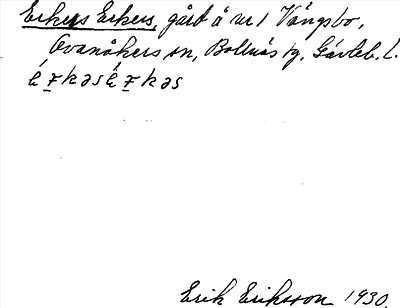 Erkers Erkers, gård å nr 1 Vängsbo,
Ovanåkers sn, Bollnäs tg, Gävleb. l.
Erik Eriksson 1930.